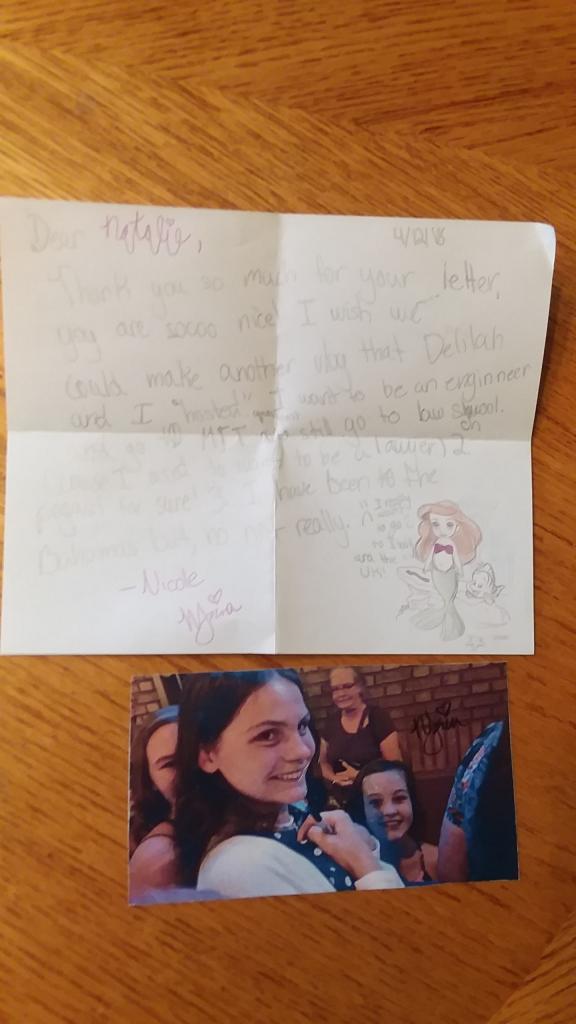 Dear Natalie, 4/2/18
Thank you so much for your letter,
you are soooo nice! I wish we
could make another vlog that Delilah
and I "hosted". I want to be an enginneer
and go to MIT still go to law school.
I used to want to be a lawyer) 2.
for sure! 3. I have been to the
Bahamas but, no not really.
I really
to go
to
and the
UK!
-Nicole